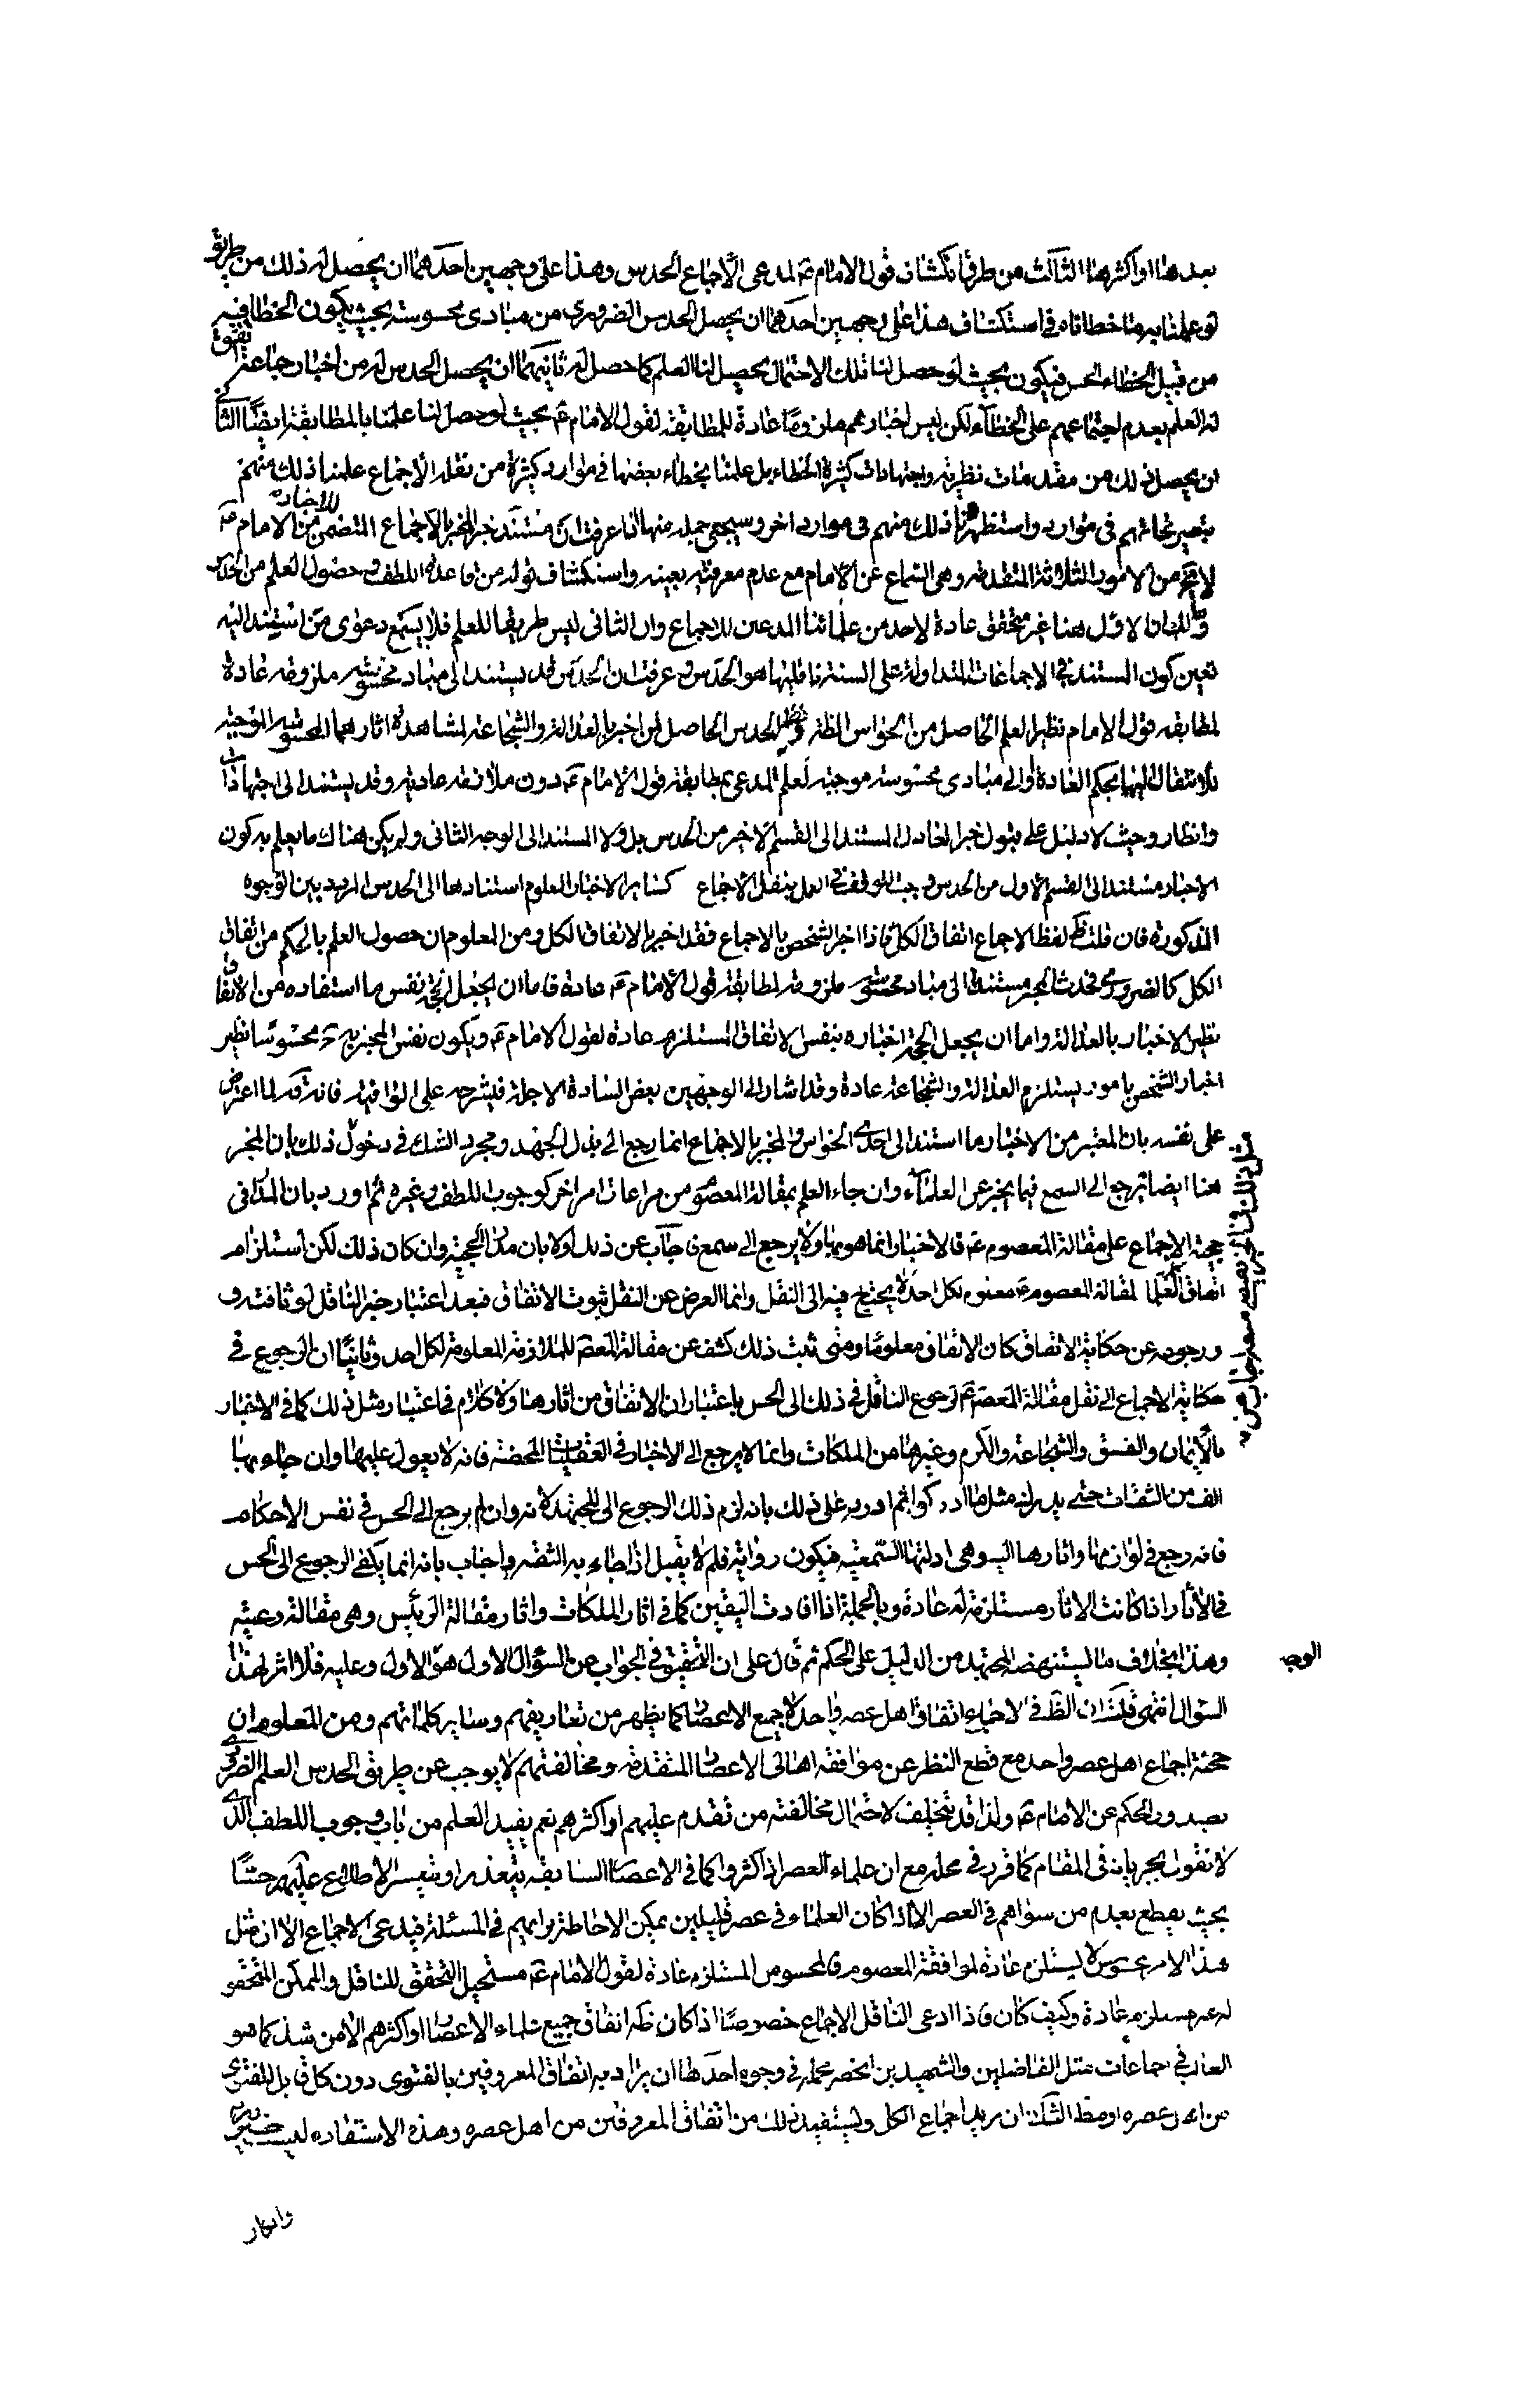 بعدها او اكثرها الثالث من طرق انكشاف قول الامام ع لمدعى الاجماع الحدس وهذا على وجهين احدهما ان يحصل له ذلك من طريق
لو علمنا به ما خطاناه فى استكشاف هذا على وجهين احدهما ان يحصل الحدس الضرورى من مبادى محسوسة بحيث يكون الخطا فيه
من قبيل الخطاء فى الحس فيكون بحيث لو حصل لنا تلك الاخبار يحصل لنا العلم كما حصل له ثانيهما ان يحصل الحدس له من اخبار جماعة اتفق
له العلم بعدم اجتماعهم على الخطاء لكن ليس اخبارهم ملزوما عادة للمطابقة لقول الامام ع بحيث لو حصل لنا علمنا بالمطابقة ايضا الثانى
ان يحصل ذلك من مقدمات نظرية واجتهادات كثيرة الخطاء بل علمنا بخطاء بعضها فى موارد كثيرة من نقلة الاجماع علمنا ذلك منهم
بتصريحاتهم فى موارد واستظهرنا ذلك منهم فى موارد اخر وسيجئ جملة منها اذا عرفت ان مستند خبر المخبر بالاجماع المتضمن للاخبار من الامام ع
لا يخ من الامور الثلاثة المتقدمة وهى السماع عن الامام مع عدم معرفته بعينه واستكشاف قوله من قاعدة اللطف وحصول العلم من الحدس
وظهر لك ان الاول هنا غير متحقق عادة لاحد من علمائنا المدعين للاجماع وان الثانى ليس طريقا للعلم فلا يسمع دعوى من استند اليه
تعين كون المستند فى الاجماعات المتداولة على السنة ناقليها هو الحدس وعرفت ان الحدس قد يستند الى مباد محسوسة ملزومة عادة
لمطابقة قول الامام نظير العلم الحاصل من الحواس الظاهرة ونظير الحدس الحاصل لمن اخبر بالعدالة والشجاعة لمشاهدة اثارهما المحسوسة الموجبة
للانتقال اليهما بحكم العادة او الى مبادى محسوسة موجبة لعلم المدعى بمطابقة قول الامام ع دون ملازمة عادية وقد يستند الى اجتهادات
وانظار وحيث لا دليل على قبول خبر العادل المستند الى القسم الاخير من الحدس بل ولا المستند الى الوجه الثانى ولم يكن هناك ما يعلم به كون
الاخبار مستندا الى القسم الاول من الحدس وجب التوقف فى العمل بنقل الاجماع كسائر الاخبار المعلوم استنادها الى الحدس المردد بين الوجوه
المذكورة فان قلت ظاهر لفظ الاجماع اتفاق الكل فاذا اخبر الشخص بالاجماع فقد اخبر بالاتفاق الكل ومن المعلوم ان حصول العلم بالحكم من اتفاق
الكل كالضرورى فحدث المخبر مستند الى مباد محسوسة ملزومة لمطابقة قول الامام ع عادة فاما ان يجعل الحجة نفس ما استفاده من الاتفاق
نظير الاخبار بالعدالة واما ان يجعل الحجة اخباره بنفس الاتفاق المستلزم عادة لقول الامام ع ويكون نفس المخبر به ح محسوسا نظير
اخبار الشخص بامور يستلزم العدالة والشجاعة عادة وقد اشار الى الوجهين بعض السادة الاجلة فى شرحه على الوافية فانه قده لما اعترض
على نفسه بان المعتبر من الاخبار ما استند الى احدى الحواس والمخبر بالاجماع انما رجع الى بذل الجهد ومجرد الشك فى دخول ذلك بان المخبر
هنا ايضا يرجع الى السمع فيما يخبر عن العلماء وان جاء العلم بمقالة المعصوم من مراعات امر اخر كوجوب اللطف وغيره ثم اورد بان المدار فى
حجية الاجماع على مقالة المعصوم ع فالاخبار انما هو بها ولا يرجع الى سمع فاجاب عن ذلك اولا بان مدار الحجية وان كان ذلك لكن استلزام
اتفاق العلماء لمقالة المعصوم ع معلوم لكل احد لا يحتاج فيه الى النقل وانما الغرض عن النقل ثبوت الاتفاق فبعد اعتبار خبر الناقل لوثاقته و
ورجوعه عن حكاية الاتفاق كان الاتفاق معلوما ومتى ثبت ذلك كشف عن مقالة المعصوم للملازمة المعلومة لكل احد وثانيا ان الرجوع فى
حكاية الاجماع الى نقل مقالة المعصوم ع لرجوع الناقل فى ذلك الى الحس باعتبار ان الاتفاق من اثارها ولا كلام فى اعتبار مثل ذلك كما فى الاخبار
بالايمان والفسق والشجاعة والكرم وغيرها من الملكات وانما لا يرجع الى الاخبار فى العقليات المحضة فانه لا يعول عليها وان جاء بها
الف من الثقات حتى يدرك مثل ما ادركوا ثم اورد على ذلك بانه لزم ذلك الرجوع الى المجتهد لانه وان لم يرجع الى الحس فى نفس الاحكام
فانه رجع فى لوازمها واثارها اليه وهى ادلتها السمعية فيكون رواية فلم لا يقبل اذا جاء به الثقة واجاب بانه انما يكفى الرجوع الى الحس
فى الاثار اذا كانت الاثار مستلزمة له عادة وبالجملة اذا افادت اليقين كما فى اثار الملكات واثار مقالة الرئيس وهى مقالة رعيته
وهذا بخلاف ما يستنهضه المجتهد من الدليل على الحكم ثم قال على ان التحقيق فى الجواب عن السؤال الاول هو الاول وعليه فلا اثر لهذا
الوجه
السؤال انتهى قلت ان الظ فى الاجماع اتفاق اهل عصر واحد لا جميع الاعصار كما يظهر من تعاريفهم وسائر كلماتهم ومن المعلوم ان
حجية اجماع اهل عصر واحد مع قطع النظر عن موافقة اهالى الاعصار المتقدمة ومخالفتهم لا يوجب عن طريق الحدس العلم الضرورى
بصدور الحكم عن الامام ع ولذا قد يتخلف لاحتمال مخالفته من تقدم عليهم او اكثرهم نعم يفيد العلم من باب وجوب اللطف الذى
لا نقول بجريانه فى المقام كما قرر فى محله مع ان علماء العصر اذا كثروا كما فى الاعصار السابقة يتعذر او يتعسر الاطلاع عليهم حسا
بحيث يقطع بعدم من سواهم فى العصر الا اذا كان العلماء فى عصر قليلين يمكن الاحاطة برايهم فى المسئلة فيدعى الاجماع الا ان مثل
هذا الامر المحسوس لا يستلزم عادة لموافقة المعصوم فالمحسوس المستلزم عادة لقول الامام ع مستحيل التحقق للناقل والممكن المتحقق
له غير مستلزم عادة وكيف كان فاذا ادعى الناقل الاجماع خصوصا اذا كان ظاهره اتفاق جميع علماء الاعصار او اكثرهم الا من شذ كما هو
الغالب فى اجماعات مثل الفاضلين والشهيدين انحصر محمله فى وجوه احدها ان يراد به اتفاق المعروفين بالفتوى دون كل قابل للفتوى
من اهل عصره او مطلقا الثانى ان يريد اجماع الكل ويستفيد ذلك من اتفاق المعروفين من اهل عصره وهذه الاستفادة ليست ضرورية
وان كان